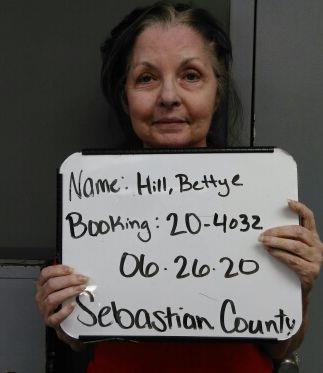 Name: Hill, Bettye
Booking: 20-4032
06.26.20
Sebastian County